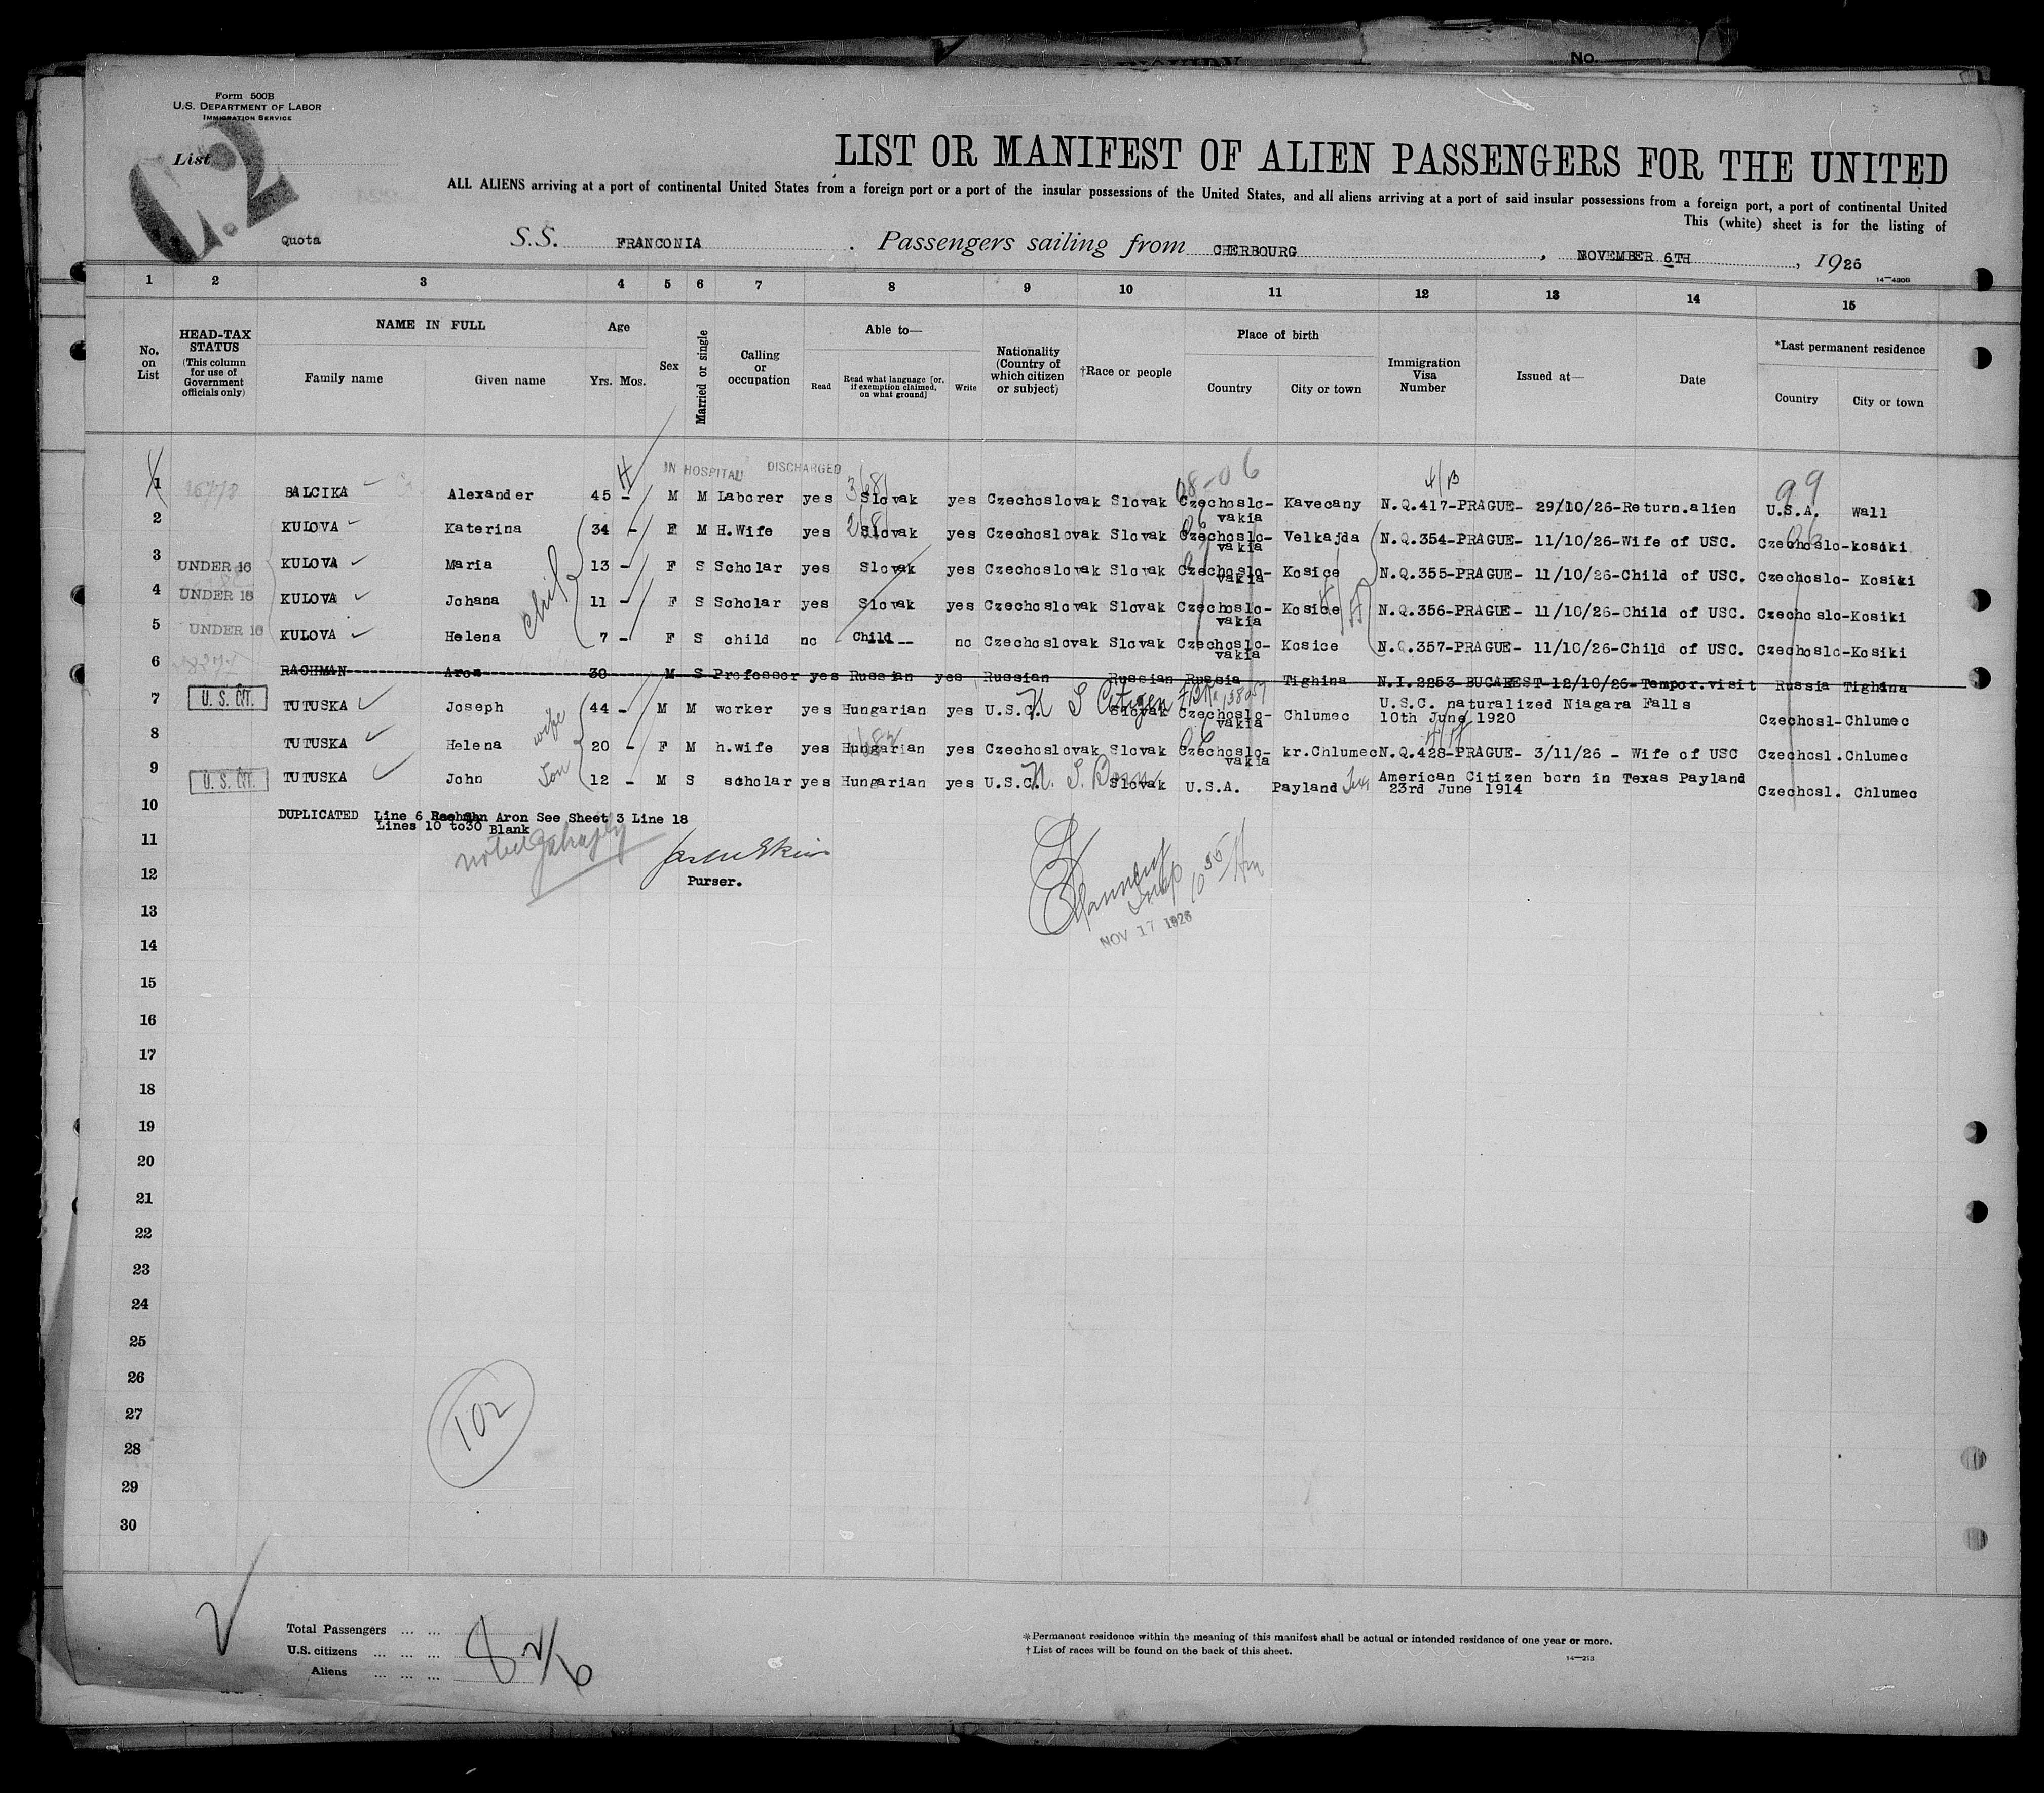 No.
Form 500B
U.S. DEPARTMENT OF LABOR
IMMIGRATION SERVICE
List
C.2
LIST OR MANIFEST OF ALIEN PASSENGERS FOR THE UNITED
ALL ALIENS arriving at a port of continental United States from a foreign port or a port of the insular possessions of the United States, and all aliens arriving at a port of said insular possessions from a foreign port, a port of continental United
This (white) sheet is for the listing of
Quota S.S. FRANCONIA . Passengers sailing from CHERBOURG , NOVEMBER 6TH , 1926
14—430B
1 2 3 4 5 6 7 8 9 10 11 12 13 14 15
No. on List
HEAD-TAX STATUS (This column for use of Government officials only)
NAME IN FULL
Family name Given name
Age
Yrs. Mos.
Sex
Married or single
Calling or occupation
Able to—
Read
Read what language [or, if exemption claimed, on what ground]
Write
Nationality (Country of which citizen or subject)
†Race or people
Place of birth
Country City or town
Immigration Visa Number
Issued at—
Date
*Last permanent residence
Country City or town
IN HOSPITAL DISCHARGED 08-06 4/B 99
1 BALCIKA Alexander 45 - M M Laborer yes Slovak yes Czechoslovak Slovak Czechoslo-vakia Kavecany N.Q.417-PRAGUE- 29/10/26-Return.alien U.S.A. Wall
2 KULOVA Katerina 34 - F M H.Wife yes Slovak yes Czechoslovak Slovak Czechoslo-vakia Velkajda N.Q.354-PRAGUE- 11/10/26-Wife of USC. Czechoslo-kosiki
3 UNDER 16 KULOVA Maria 13 - F S Scholar yes Slovak yes Czechoslovak Slovak Czechoslo-vakia Kosice N.Q.355-PRAGUE- 11/10/26-Child of USC. Czechoslo- Kosiki
4 UNDER 16 KULOVA Johana 11 - F S Scholar yes Slovak yes Czechoslovak Slovak Czechoslo-vakia Kosice N.Q.356-PRAGUE- 11/10/26-Child of USC. Czechoslo-Kosiki
5 UNDER 16 KULOVA Helena 7 - F S child no Child-- no Czechoslovak Slovak Czechoslo-vakia Kosice N.Q.357-PRAGUE- 11/10/26-Child of USC. Czechoslo-Kosiki
6 RACHMAN Aron 30 M S Professor yes Russian yes Russian Russian Russia Tighina N.I.2253 BUCAREST-12/10/26-Tempor.visit Russia Tighina
7 U.S. CIT. TUTUSKA Joseph 44 - M M worker yes Hungarian yes U.S.C. U S Citizen Slovak Czechoslo-vakia Chlumec U.S.C. naturalized Niagara Falls 10th June 1920 Czechosl-Chlumec
8 TUTUSKA Helena wife 20 - F M h.wife yes Hungarian yes Czechoslovak Slovak Czechoslo-vakia kr.Chlumec N.Q.428-PRAGUE- 3/11/26 - Wife of USC Czechosl.Chlumec
9 U.S. CIT. TUTUSKA John Son 12 - M S scholar yes Hungarian yes U.S.C. U. S. Born Slovak U.S.A. Payland American Citizen born in Texas Payland 23rd June 1914 Czechosl. Chlumec
10 DUPLICATED Line 6 Aron See Sheet 3 Line 18
Lines 10 to30 Blank
11
12 Purser.
13
NOV 17 1926
14
15
16
17
18
19
20
21
22
23
24
25
26
27
28
29
30
102
Total Passengers ... ...
U.S. citizens ... ... ...
Aliens ... ... ...
8 2/6
*Permanent residence within the meaning of this manifest shall be actual or intended residence of one year or more.
†List of races will be found on the back of this sheet.
14—213